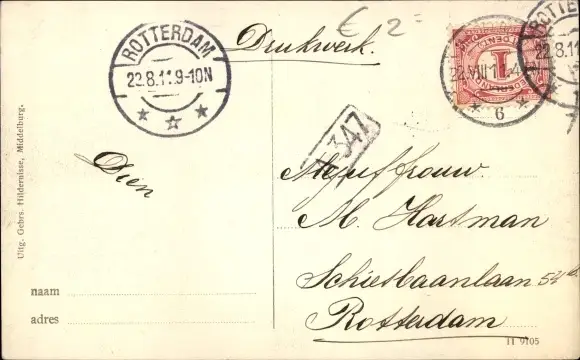 € 2=
Drukwerk.
ROTTERDAM
22.8.11.9-10N
ROTTERDAM
22.VIII 11.4
22.8.1
6
1
347
Dien
Mejuffrouw
M. Hartman
Schietbaanlaan
Rotterdam
naam
adres
Uitg. Gebrs. Hildernisse, Middelburg.
II 9705